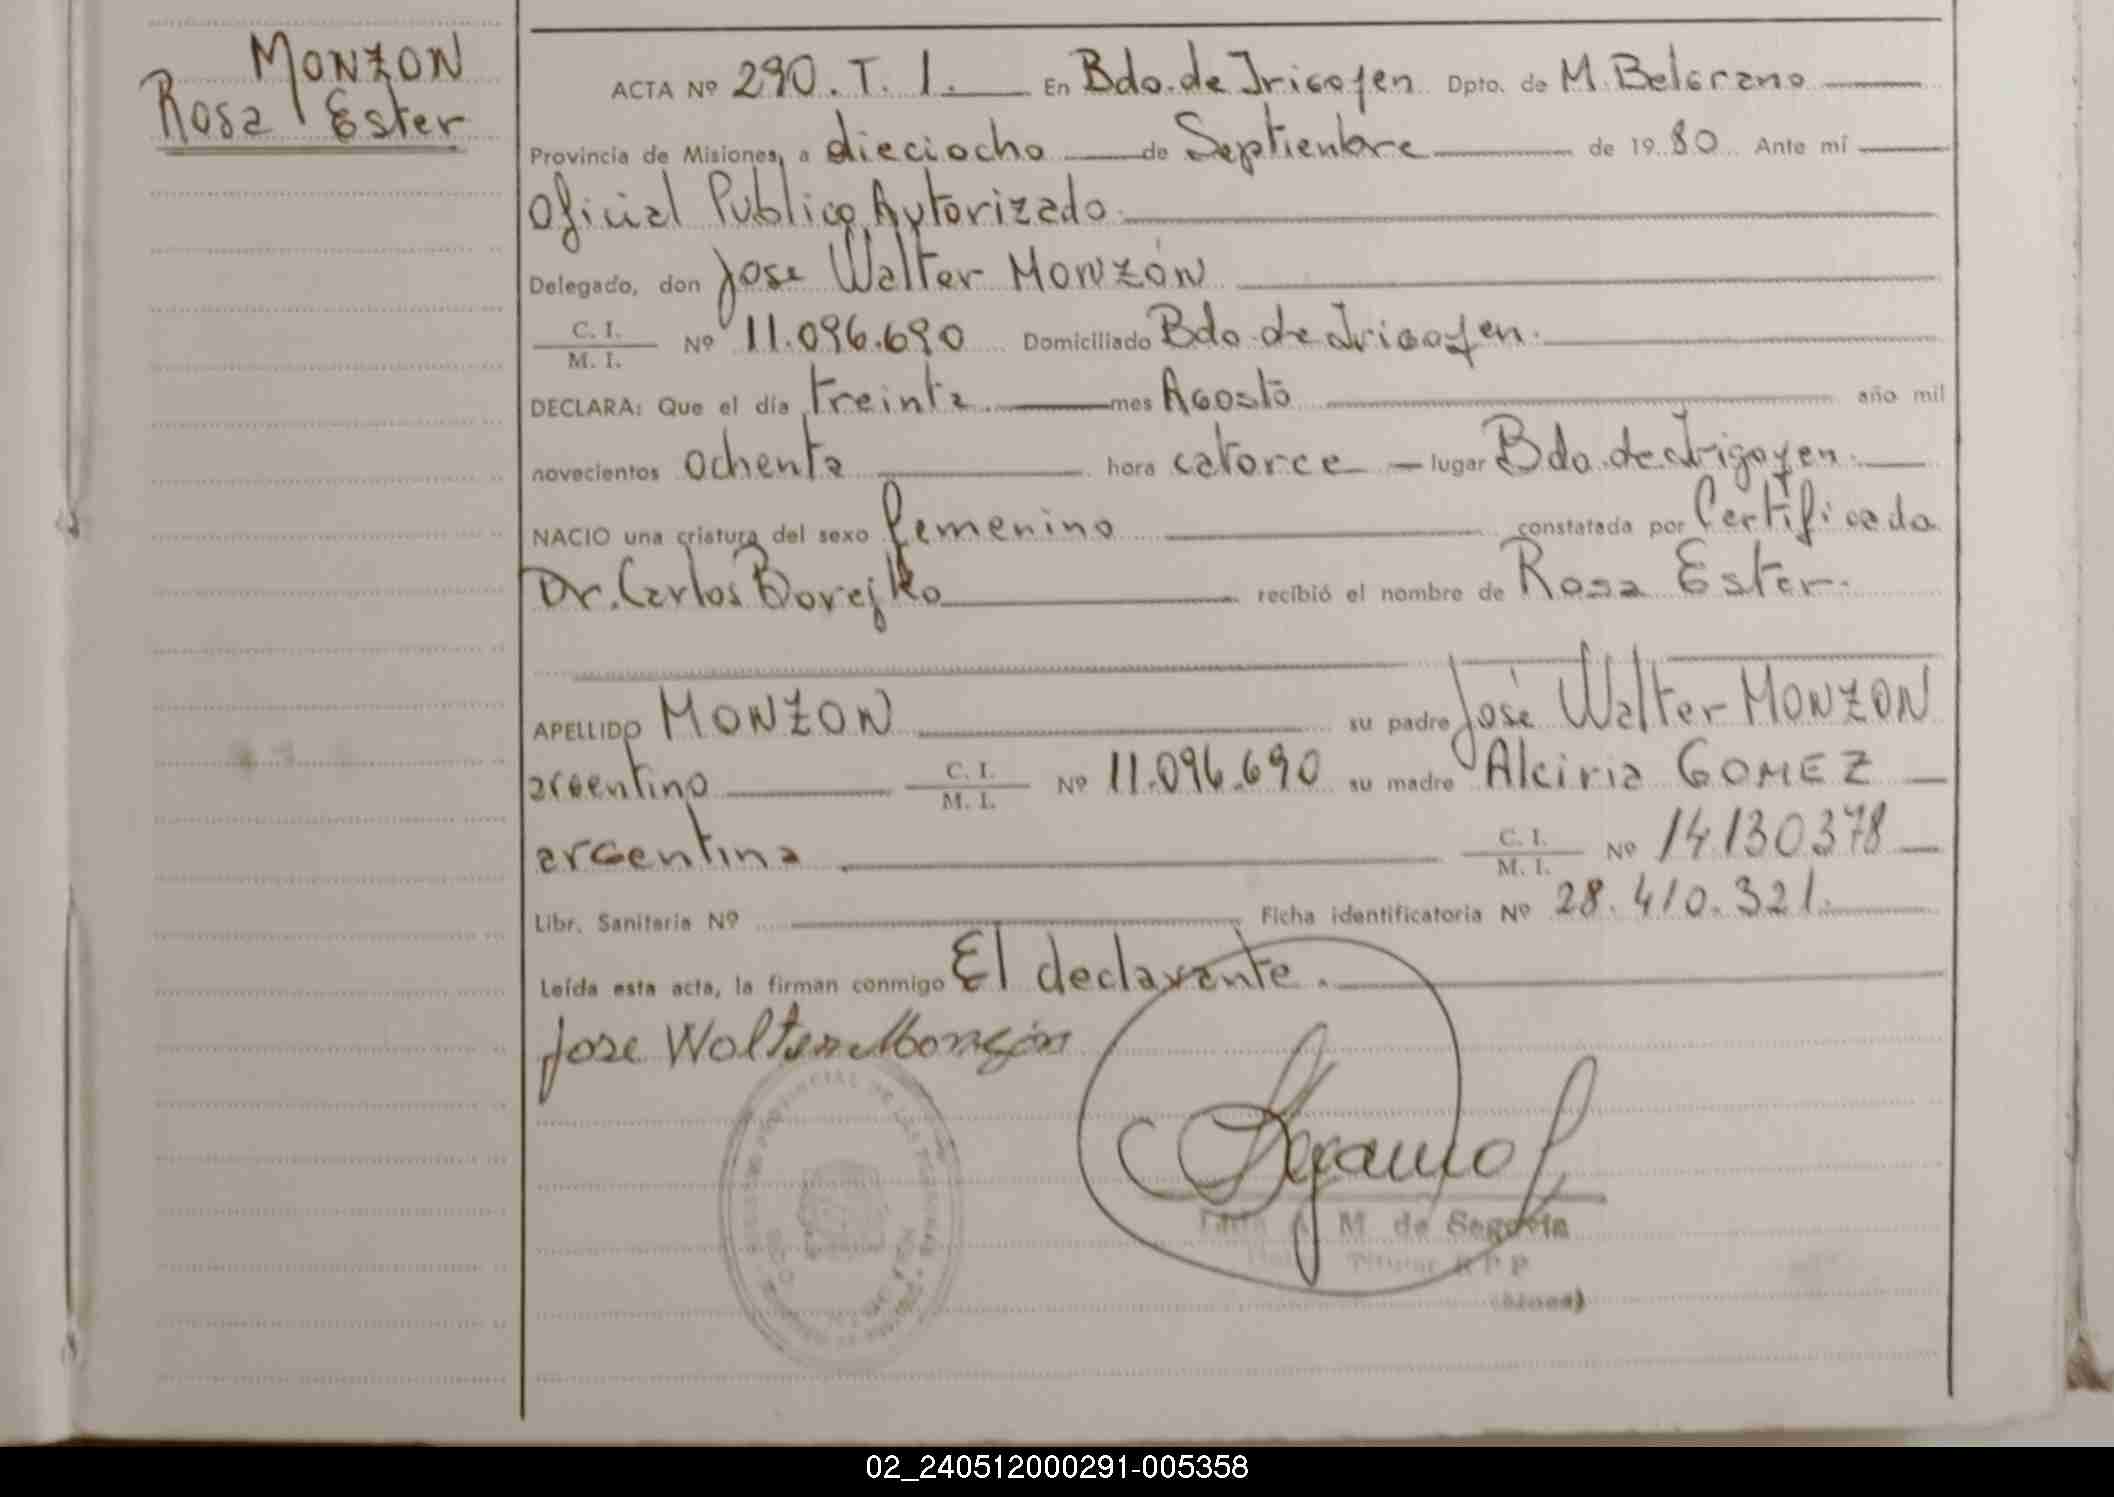 MONZON
Rosa Ester
ACTA Nº 290. T. 1. En Bdo. de Irigoyen Dpto. de M. Belgrano
Provincia de Misiones, a dieciocho de Septienbre de 1980 Ante mí
Oficial Publico Autorizado.
Delegado, don Jose Walter MONZÓN
C. I.
M. I.
Nº 11.096.690 Domiciliado Bdo. de Irigoyen.
DECLARA: Que el día treinta mes Agosto año mil
novecientos ochenta hora catorce lugar Bdo. de Irigoyen.
NACIO una criatura del sexo femenino constatada por Certificado
Dr. Carlos Borejko recibió el nombre de Rosa Ester.
APELLIDO MONZON su padre José Walter MONZON
argentino C. I. M. I. Nº 11.096.690 su madre Alciria GOMEZ
argentina C. I. M. I. Nº 14130378
Libr. Sanitaria Nº Ficha identificatoria Nº 28.410.321.
Leída esta acta, la firman conmigo El declarante.
Jose Walter Monzón
M. de Segovia
Titular R P P
02_240512000291-005358